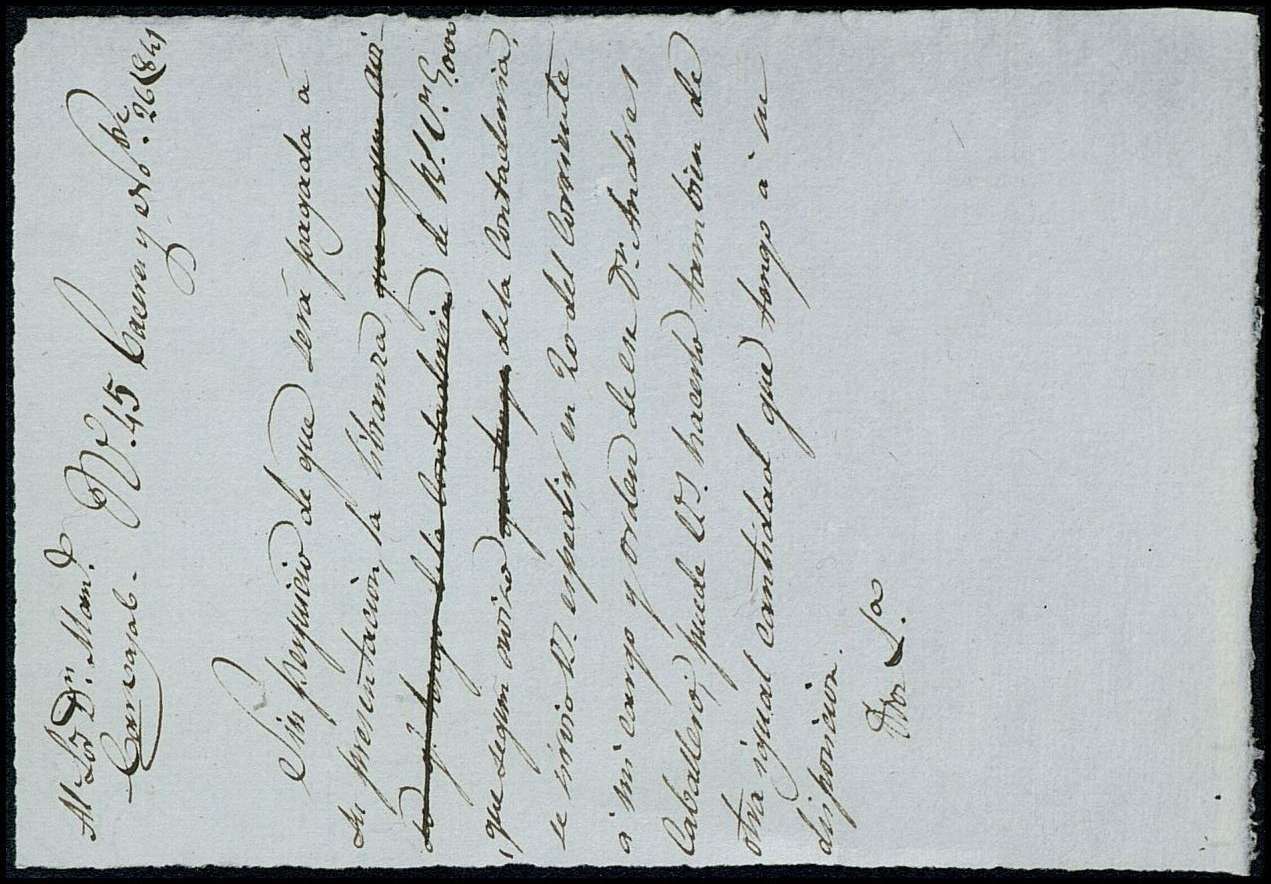 Al Sor. Dn. Man.l
Carvajal.
N. 45 Caceres y Nobre. 26/841
Sin perjuicio de que será pagada á
su presentacion, la libranza que segun avi-
so q.e tengo de la Contaduria de
que segun aviso que tengo de la Contaduria,
se sirvio V. espedir en 20 del corriente
a mi cargo y orden de ese Dn. Andres
Caballero, puede V.S. hacerlo tambien de
otra igual cantidad que tengo á su
disposicion.